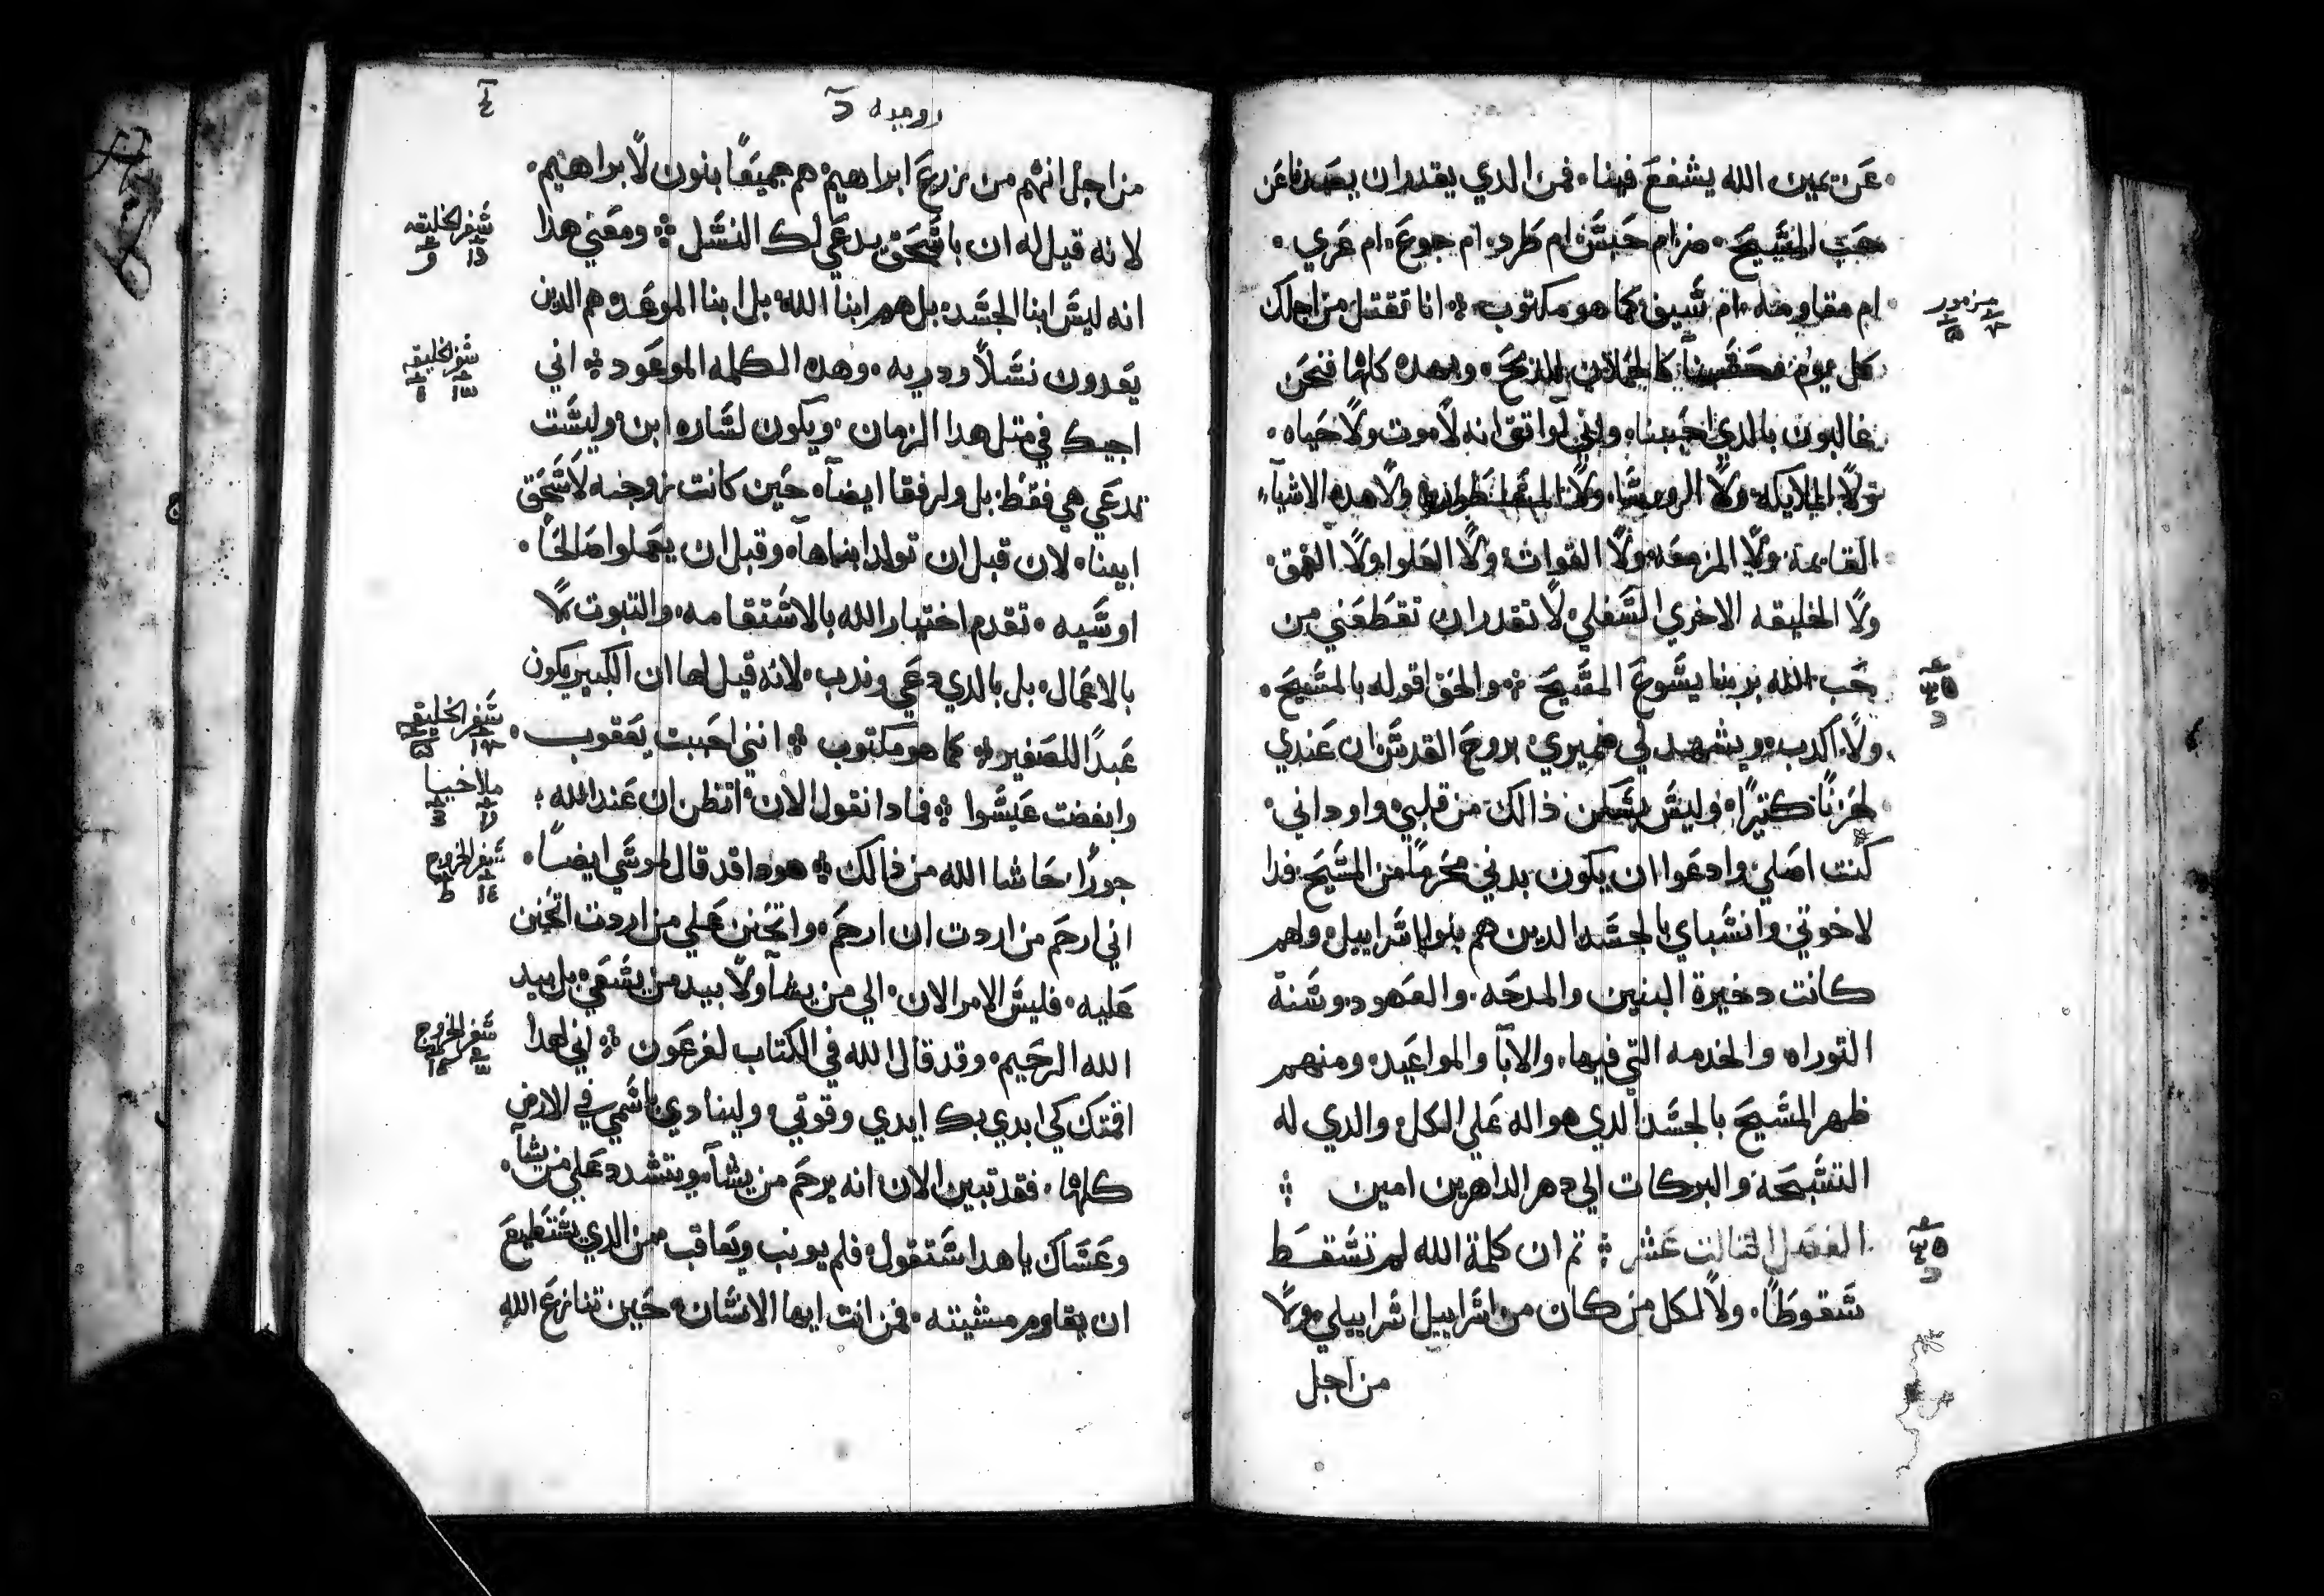 عن يمين الله يشفع فينا. فمن الدي يقدر ان يصدنا عن
حب المسيح. ضر ام حبس. ام طرد. ام جوع. ام عري.
ام مقاومه. ام سيف. كما هو مكتوب. انا نقتل من اجلك
كل يوم كالحملان للدبح. وبهده كلها فنحن
غالبون بالدي احبنا. واني لواتق انه لا موت ولا حياه.
ولا الملايكه. ولا الروسا. ولا ولا هده الاشيا
القايمه. ولا المزمعه. ولا القوات. ولا العلوا. ولا العمق.
ولا الخليقه الاخري السفلي. لا تقدر ان تقطعني من
حب الله بربنا يسوع المسيح. والحق اقوله بالمسيح.
ولا اكدب. ويشهد لي ضميري. بروح القدس. ان عندي
لحزنًا كتيرًا. وليس يسكن ذالك من قلبي. واوداني.
كنت اصلي وادعوا ان يكون بدني محرمًا من المسيح. فدا
لاخوتي وانسباي بالجسد الدين هم بنوا اسراييل. ولهم
كانت دخيرة البنين والمدحه. والعهود. وسنة
التوراه والخدمه التي فيها. والابا والمواعيد. ومنهم
ظهر المسيح بالجسد الدي هو اله علي الكل. والدي له
التسبحه والبركات الي دهر الداهرين امين
الفصل التالت عشر تم ان كلمة الله لم تسقط
سقوطًا. ولا لكل من كان من اسراييل اسراييلي. ولا
من اجل
مزمور
روميه
من اجل انهم من زرع ابراهيم. هم جميعًا بنون لابراهيم.
لانه قيل له ان باسحق يدعي لك النسل. ومعني هدا
انه ليس ابنا الجسد. بل هم ابنا الله. بل ابنا الموعد. هم الدين
يعدون نسلًا ودريه. وهده الكلمه الموعود. اني
اجيك في متل هدا الزمان. ويكون لساره ابن. وليست
تدعي هي فقط. بل ولرفقا ايضا. حين كانت زوجه لاسحق
ابينا. لان قبل ان تولد ابناها. وقبل ان يعملوا صالحًا.
او سيه. تقدم اختيار الله بالاستقامه. والتبوت لا
بالاعمال. بل بالدي دعي وندب. لانه قيل لها ان الكبير يكون
عبدًا للصغير. كما هو مكتوب. انني احببت يعقوب.
وابغضت عيسوا. فمادا نقول الان. اتظن ان عند الله
جورًا. حاشا الله من ذالك. هودا قد قال لموسي ايضًا.
اني ارحم من اردت ان ارحم. واتحنن علي من اردت اتحنن
عليه. فليس الامر الان. الي من يشا ولا بيد من يسعي. بل بيد
الله الرحيم. وقد قال الله في الكتاب لفرعون. اني لهدا
اقمتك كي ابدي بك ايدي وقوتي. ولينادي باسمي في الارض
كلها. فقد تبين الان انه يرحم من يشا. ويتشدد علي من يشا.
وعساك يا هدا ستقول. فلم يونب ويعاقب. فمن الدي يستطيع
ان يقاوم مشيته. فمن انت ايها الانسان. حين تنازع الله
سفر الخليقه
سفر الخليقه
سفر الخليقه
ملاخيا
سفر الخروج
سفر الخروج